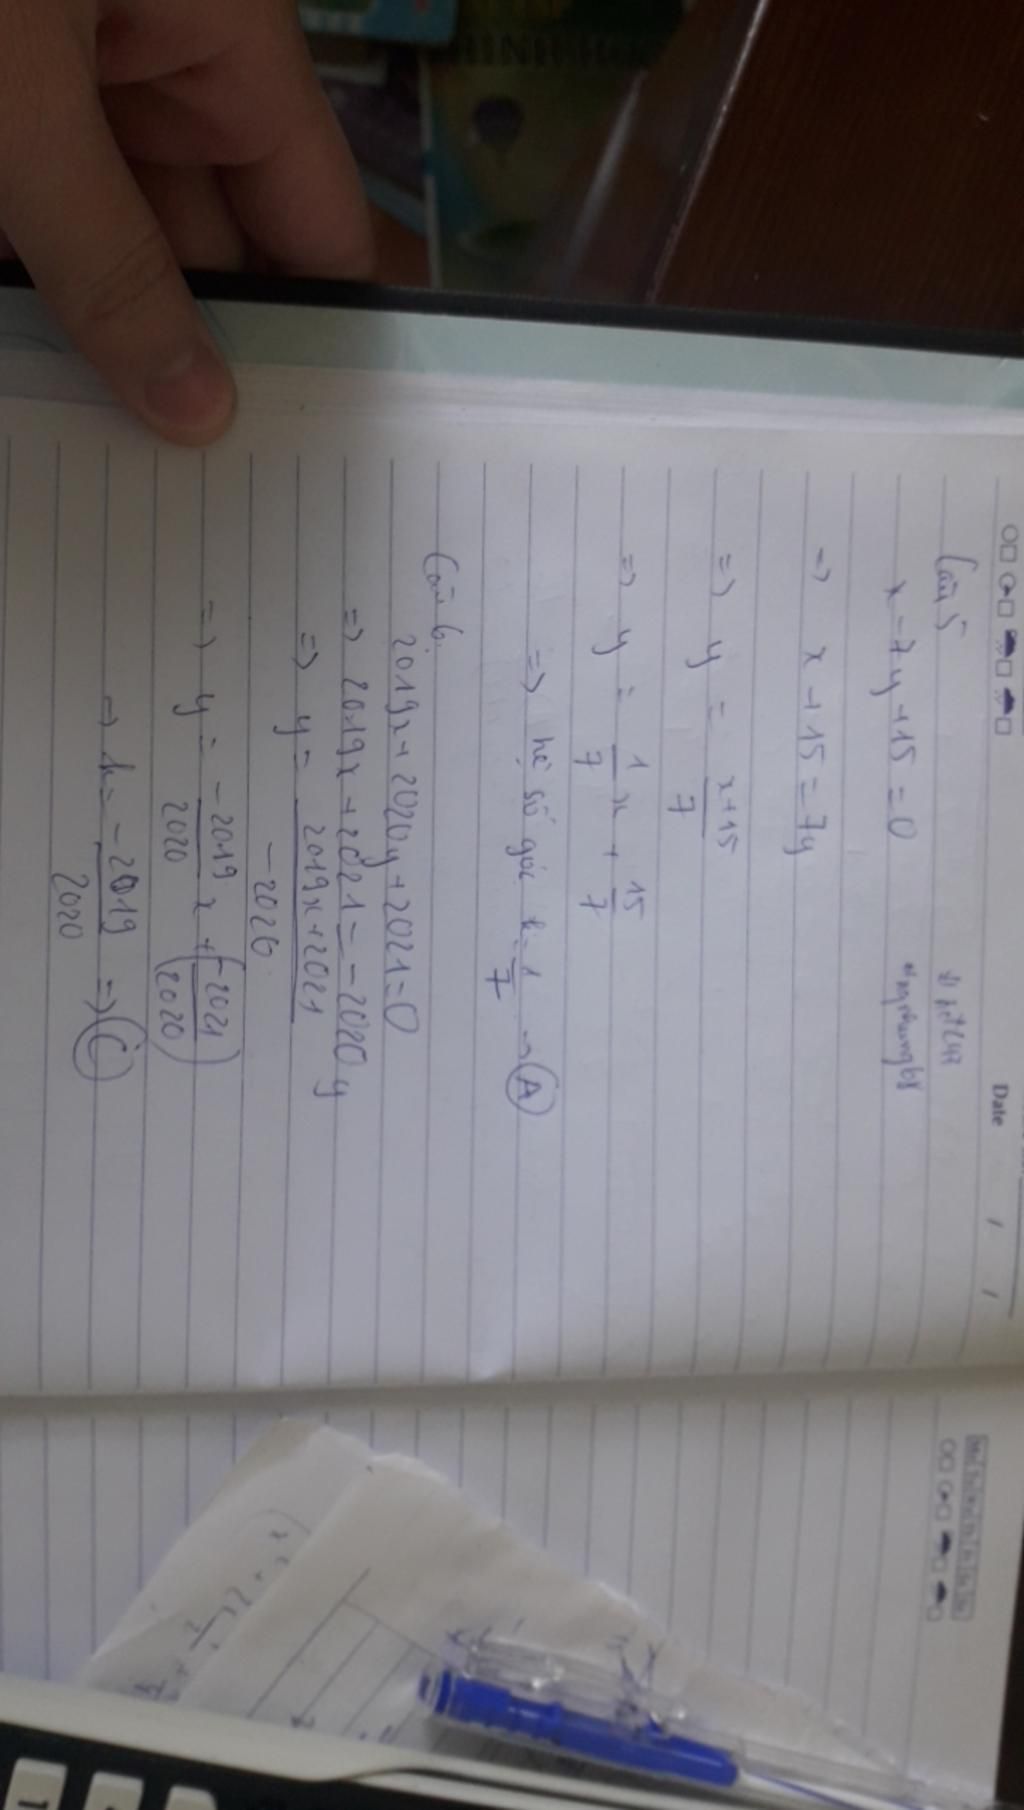 Date / /
Câu 5
x - 7y + 15 = 0
=> x + 15 = 7y
=> y = x+15 / 7
=> y = 1/7 x + 15/7
=> hệ số góc k = 1/7 → A
Câu 6.
2019x + 2020y + 2021 = 0
=> 2019x + 2021 = -2020y
=> y = 2019x + 2021 / -2020
=> y = -2019/2020 x + (-2021/2020)
=> k = -2019/2020 => C